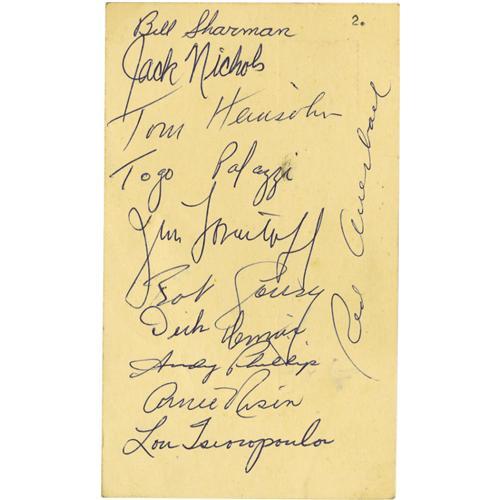 2.
Bill Sharman
Jack Nichols
Tom Heinsohn
Togo Palazzi
Jim Loscutoff
Bob Cousy
Dick Hemric
Andy Phillip
Arnie Risen
Lou Tsioropoulos
Red Auerbach